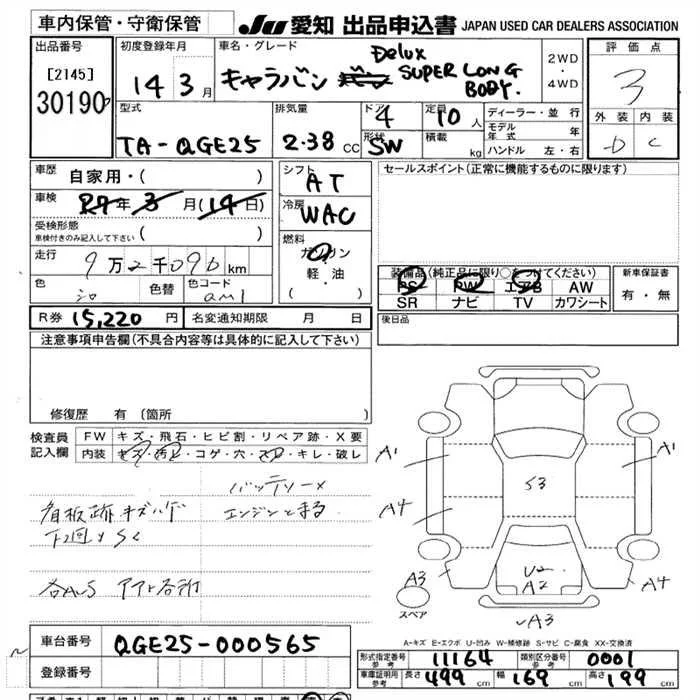 車内保管・守衛保管
JU 愛知 出品申込書 JAPAN USED CAR DEALERS ASSOCIATION
出品番号
[2145]
30190
初度登録年月
14 3月
車名・グレード
キャラバン Delux SUPER LONG BODY.
2WD
・
4WD
評価点
3
外装 内装
D C
型式
TA-QGE25
排気量
2.38 CC
ドア
4
形状
SW
定員
10人
積載
kg
ディーラー・並行
モデル年式 年
ハンドル 左・右
車歴 自家用・( )
車検 R7年3月(14日)
受検形態
車検付きのみ記入して下さい ( )
走行 9万2千090km
色 シロ 色替 色コード am1
シフト
AT
冷房
WAC
燃料
ガソリン
軽油
( ・ )
セールスポイント(正常に機能するものに限ります)
装備品(純正品に限り○をつけてください)
PS PW エアB AW
SR ナビ TV カワシート
新車保証書
有・無
R券 15,220円 名変通知期限 月 日
後日品
注意事項申告欄(不具合内容等は具体的に記入して下さい)
修復歴 有(箇所
検査員記入欄
FW キズ・飛石・ヒビ割・リペア跡・X要
内装 キズ・汚レ・コゲ・穴・スレ・キレ・破レ
バッテリー×
看板跡キズハゲ エンジン止まる
下回りSC
A1 A1
A4 A4
S3
U2
A2
A3 A4
A3
スペア
A-キズ E-エクボ U-凹み W-補修跡 S-サビ C-腐食 XX-交換済
車台番号 QGE25-000565
登録番号
形式指定番号 参考 11164 類別区分番号 参考 0001
車庫証明用 参考 長さ 499cm 幅 169cm 高さ 199cm